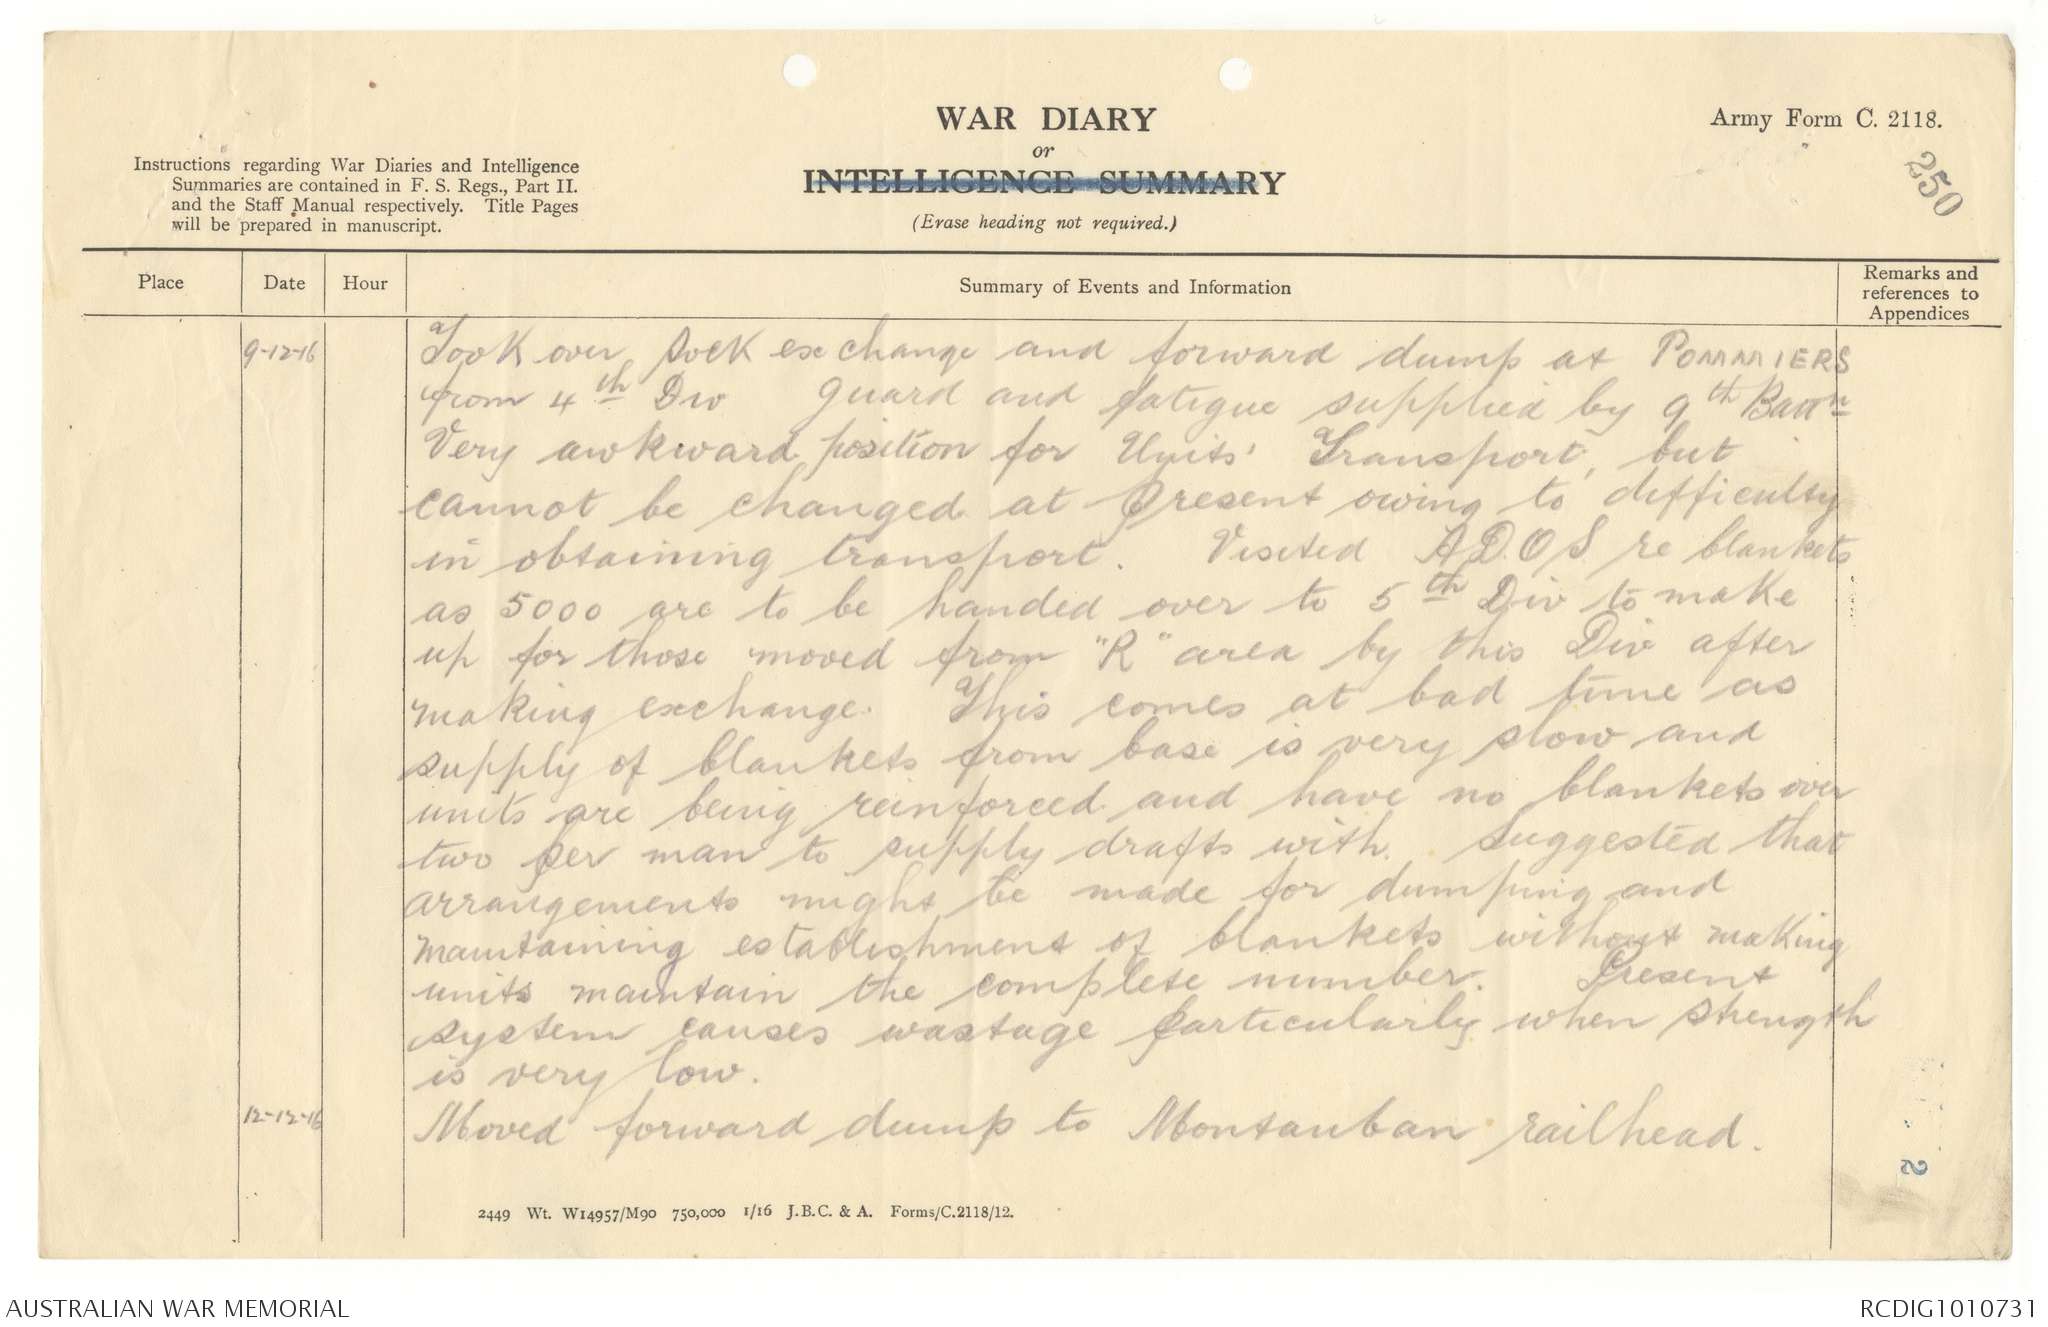 WAR DIARY
or
INTELLIGENCE SUMMARY
(Erase heading not required.)
Army Form C. 2118.
250
Instructions regarding War Diaries and Intelligence
Summaries are contained in F. S. Regs., Part II.
and the Staff Manual respectively. Title Pages
will be prepared in manuscript.
Place Date Hour Summary of Events and Information Remarks and references to Appendices
9-12-16 Took over sock exchange and forward dump at POMMIERS
from 4th Div Guard and fatigue supplied by 9th Battn
Very awkward position for Units' Transport, but
cannot be changed at present owing to difficulty
in obtaining transport. Visited A.D.O.S. re blankets
as 5000 are to be handed over to 5th Div to make
up for those moved from "R" area by this Div after
making exchange. This comes at bad time as
supply of blankets from base is very slow and
units are being reinforced and have no blankets over
two per man to supply drafts with. Suggested that
arrangements might be made for dumping and
maintaining establishment of blankets without making
units maintain the complete number. Present
system causes wastage particularly when strength
is very low.
12-12-16 Moved forward dump to Montauban railhead.
2
2449 Wt. W14957/M90 750,000 1/16 J.B.C. & A. Forms/C.2118/12.
AUSTRALIAN WAR MEMORIAL
RCDIG1010731